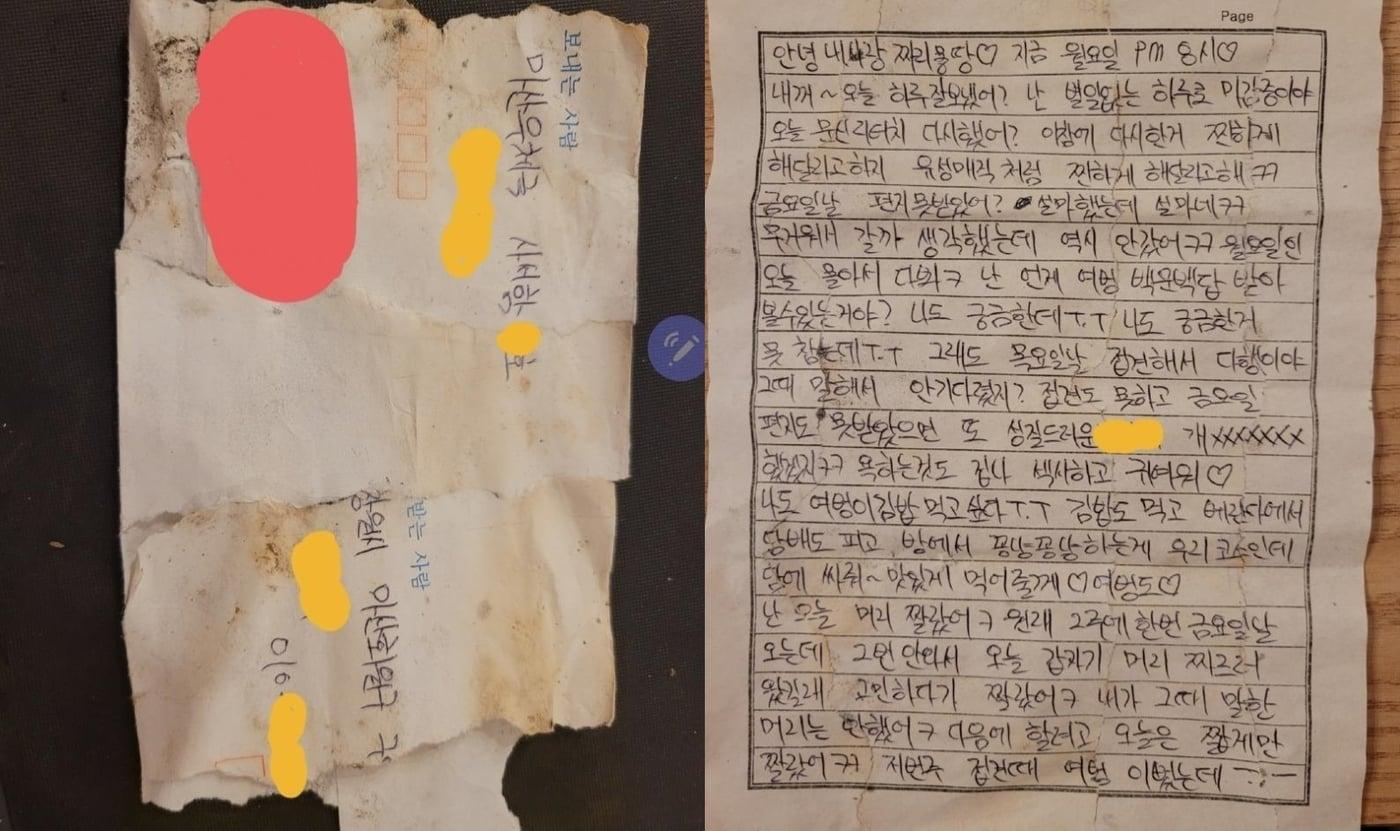 보내는 사람
마산우체국 사서함 호
받는 사람
창원시 마산회원구 구
Page
안녕 내사랑 찌리퐁땅♡ 지금 월요일 PM 8시♡
내꺼~ 오늘 하루잘보냈어? 난 별일없는 하루로 마감중이야
오늘 문신리터치 다시했어? 이참에 다시한거 찐하게
해달라고하지 유성매직처럼 찐하게 해달라고해ㅋㅋ
금요일날 편지못받았어? 설마했는데 설마네ㅋㅋ
무거워서 갈까 생각했는데 역시 안갔어ㅋㅋ 월요일인
오늘 몰아서 다봐ㅋ 난 언제 여벙 백문백답 받아
볼수있는거야? 나도 궁금한데T.T 나도 궁금한거
못 참는데T.T 그래도 목요일날 접견해서 다행이야
그때 말해서 안기다렸지? 접견도 못하고 금요일
편지도 못받았으면 또 성질드러운 개xxxxxxx
했겠지ㅋㅋ 욕하는것도 겁나 섹시하고 귀여워♡
나도 여벙이김밥 먹고싶다T.T 김밥도 먹고 베란다에서
담배도 피고 방에서 꽁냥꽁냥하는게 우리코스인데
담에 싸줘~ 맛있게 먹어줄께♡여벙도♡
난 오늘 머리 짤랐어ㅋ 원래 2주에한번 금요일날
오는데 그땐 안와서 오늘 갑자기 머리 짜르러
왔길래 고민하다가 짤랐어ㅋ 내가 그때 말한
머리는 안했어ㅋ 다음에 할려고 오늘은 짧게만
짤랐어ㅋㅋ 저번주 접견때 여벙 이뻤는데 ㅡ;ㅡ